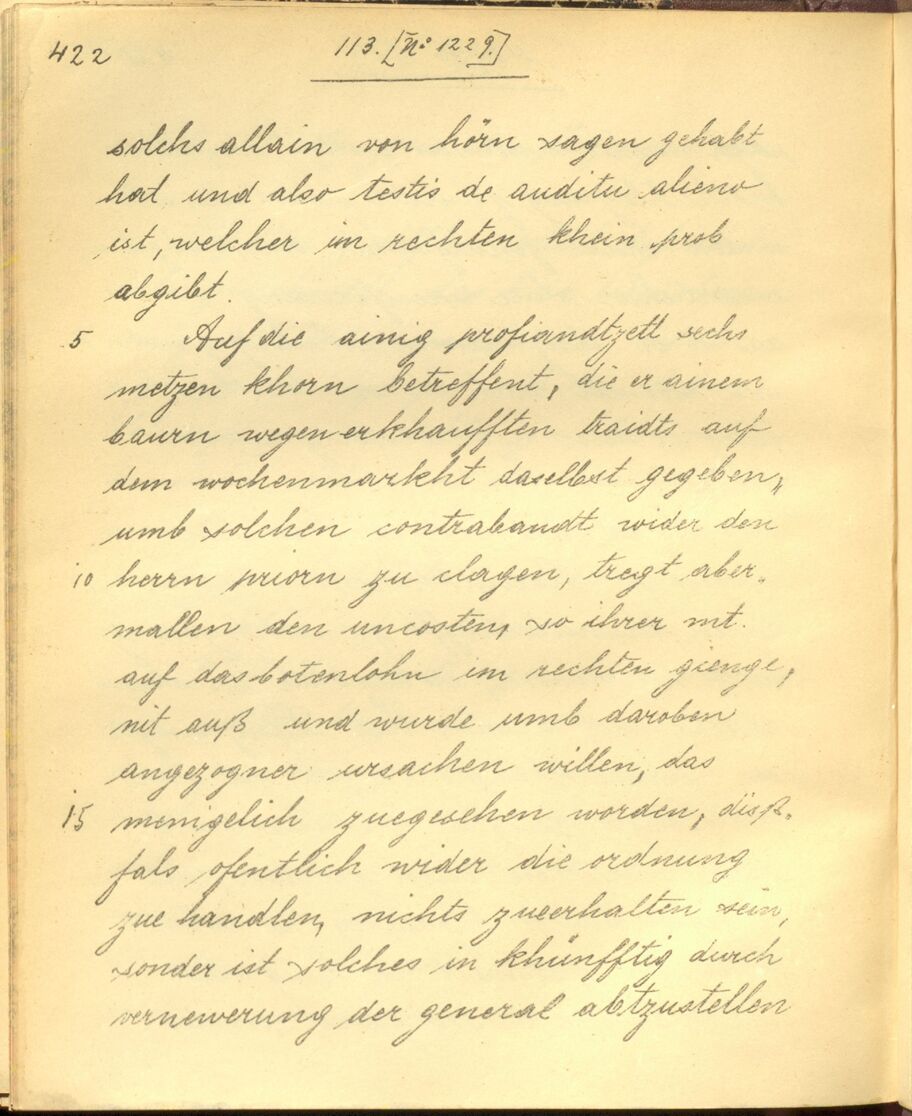 422
113. [No 1229.]
solchs allain von hörn sagen gehabt
hat und also testis de auditu alieno
ist, welcher im rechten khein prob
abgibt.
5 Auf die ainig profiandtzetl sechs
metzen khorn betreffent, die er ainem
baurn wegen erkhaufften traidts auf
dem wochenmarkht daselbst gegeben,
umb solchen contrabandt wider den
10 herrn priorn zu clagen, tregt aber-
mallen den uncosten, so ihrer mt.
auf das botenlohn im rechten gienge,
nit auß und wurde umb daroben
angezogner ursachen willen, das
15 menigelich zuegesehen worden, disß-
fals ofentlich wider die ordnung
zue handlen, nichts zueerhalten sein,
sonder ist solches in khünfftig durch
vernewerung der general abtzustellen